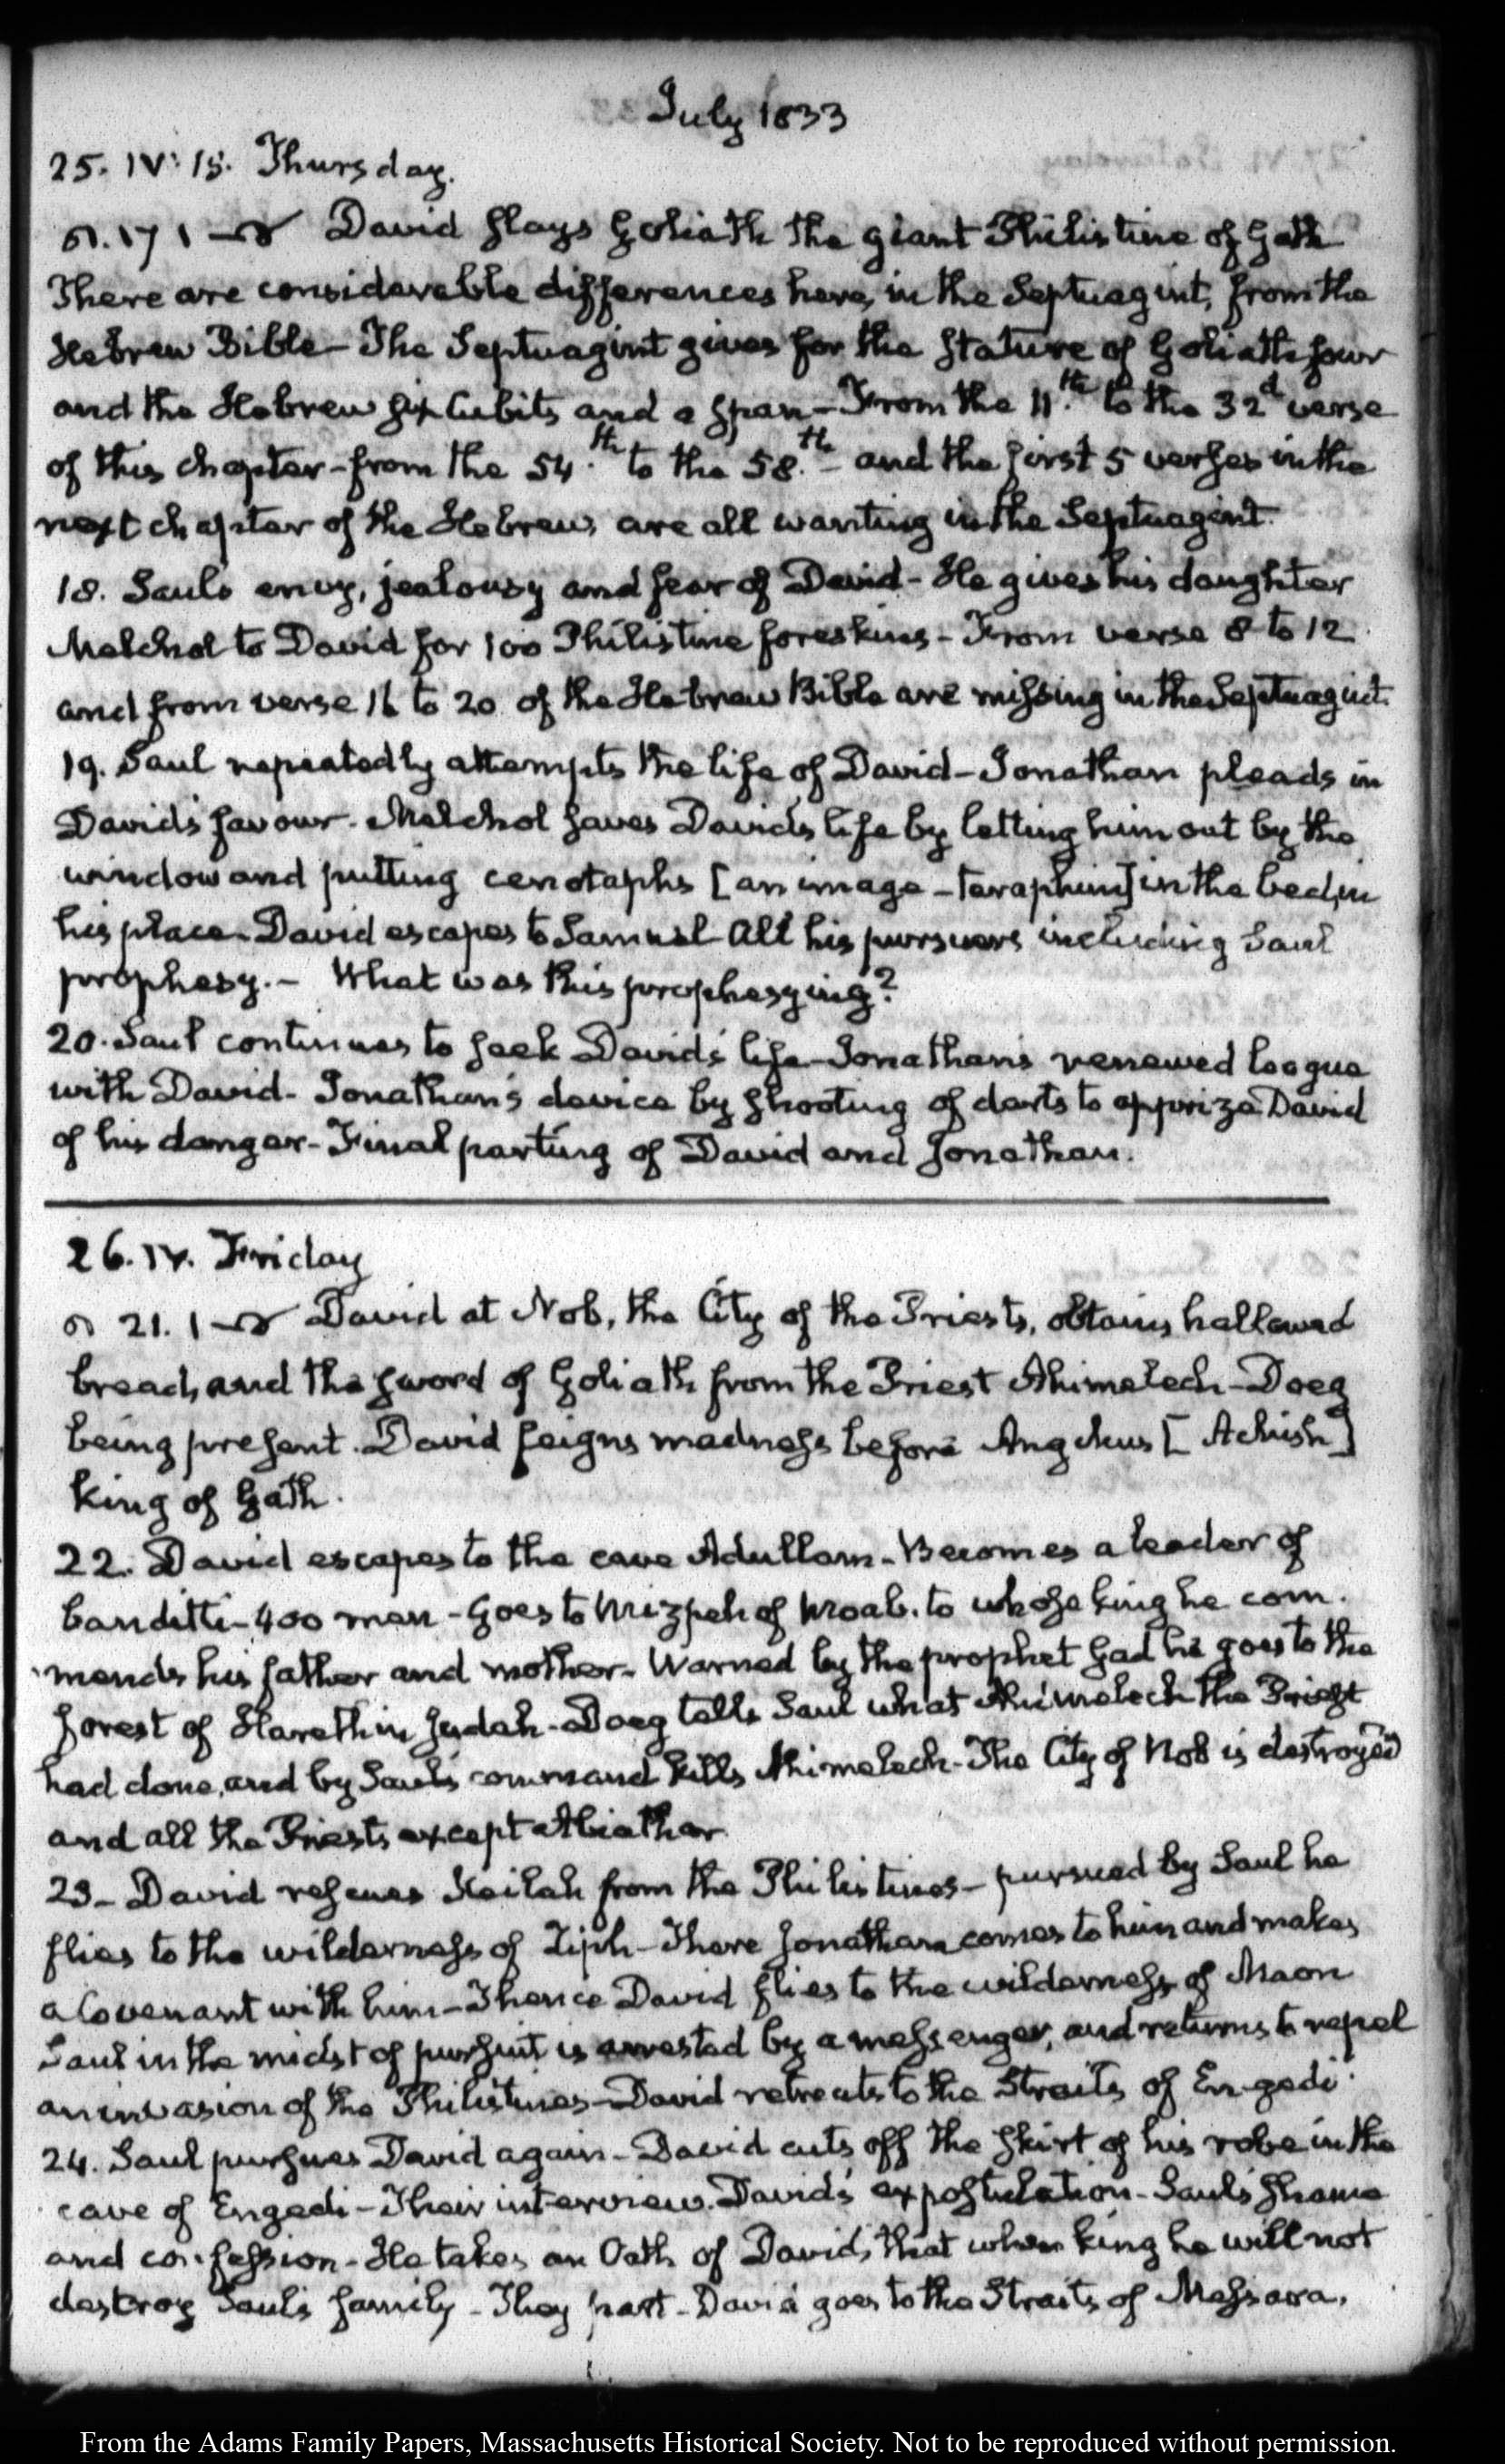 July 1833
25. IV: 15. Thursday.
17 1 David slays Goliath the giant Philistine of Gath
There are considerable differences here, in the Septuagint, from the
Hebrew Bible — The Septuagint gives for the stature of Goliath four
and the Hebrew six Cubits and a span — From the 11.th to the 32d verse
of this chapter — from the 54.th to the 58.th — and the first 5 verses in the
next chapter of the Hebrew, are all wanting in the Septuagint.
18. Sauls envy, jealousy and fear of David — He gives his daughter
Melchol to David for 100 Philistine foreskins — From verse 8 to 12
and from verse 16 to 20 of the Hebrew Bible are missing in the Septuagint.
19. Saul repeatedly attempts the life of David — Jonathan pleads in
David's favour. Melchol saves David's life by letting him out by the
window and putting cenotaphs [an image — teraphim] in the bed, in
his place. David escapes to Samuel — All his pursuers including Saul
prophesy. — What was this prophesying?
20. Saul continues to seek David's life — Jonathan's renewed league
with David — Jonathan's device by shooting of darts to apprize David
of his danger — Final parting of David and Jonathan.
26. IV. Friday
21. 1 David at Nob, the City of the Priests, obtains hallowed
bread, and the sword of Goliath from the Priest Ahimelech — Doeg
being present. David feigns madness before Angchus [Achish]
king of Gath.
22. David escapes to the cave Adullam — Becomes a leader of
banditti — 400 men — Goes to Mizpeh of Moab. to whose king he com-
mends his father and mother — Warned by the prophet Gad he goes to the
forest of Hareth in Judah — Doeg tells Saul what Ahimelech the Priest
had done, and by Saul's command kills Ahimelech — The City of Nob is destroyed
and all the Priests except Abiathar
23 — David rescues Keilah from the Philistines — pursued by Saul he
flies to the wilderness of Ziph — There Jonathan comes to him and makes
a Covenant with him — Thence David flies to the wilderness of Maon
Saul in the midst of pursuit is arrested by a messenger, and returns to repel
an invasion of the Philistines — David retreats to the Straits of En-gedi.
24. Saul pursues David again — David cuts off the skirt of his robe in the
cave of Engedi — Their interview. David's expostulation — Saul's shame
and confession — He takes an Oath of David, that when king he will not
destroy Saul's family — They part — David goes to the Straits of Messara.
From the Adams Family Papers, Massachusetts Historical Society. Not to be reproduced without permission.